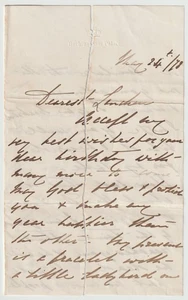 May 24th/78
Dearest Lenchen
Accept my
very best wishes for your
dear birthday with
many more to
May God bless & protect
you & make any
year happier than
the other. My present
is a bracelet with
a little ladybird on